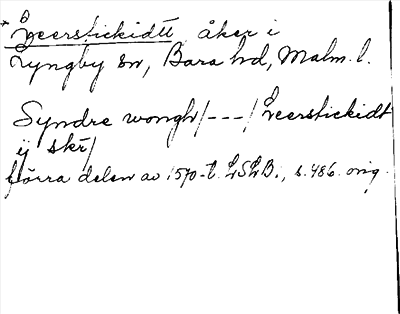 * Öveerstickidtt åker i
Lyngby sn, Bara hd, Malm. l.
Syndre wongh /---/ Øveerstickidt
ij skr/
förra delen av 1570-t. LSLB., s. 486. orig.